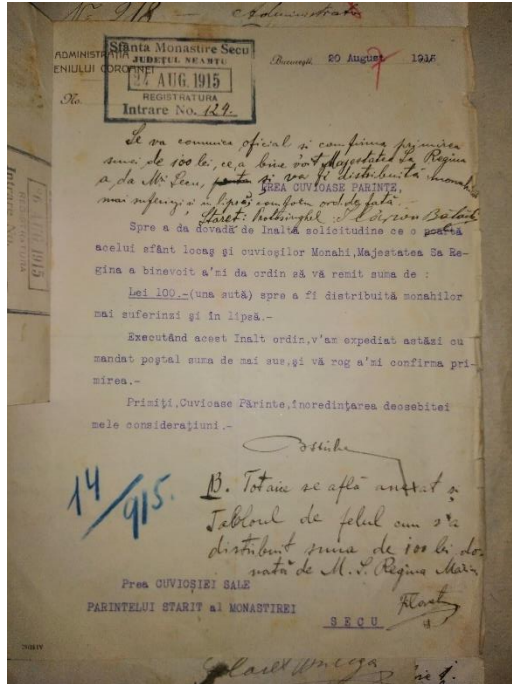 No. 918 Administrati
ADMINISTRAȚIA
ENIULUI COROANEI
No.
Sfânta Monastire Secu
JUDEȚUL NEAMȚU
24 AUG. 1915
REGISTRATURA
Intrare No. 124.
București 20 August 1915
7
Se va comunica oficial si confirma primirea
sumei de 100 lei, ce a bine voit Majestatea Sa Regina
a da M-rei Secu, și va fi distribuită monahi
mai suferinzi și in lipsă conform ord. de față.
Stareț: Protosinghel
PREA CUVIOASE PARINTE,
Spre a da dovadă de Inaltă solicitudine ce o poartă
acelui sfânt locaș și cuvioșilor Monahi,Majestatea Sa Re-
gina a binevoit a'mi da ordin să vă remit suma de :
Lei 100.-(una sută) spre a fi distribuită monahilor
mai suferinzi și în lipsă.-
Executând acest Inalt ordin,v'am expediat astăzi cu
mandat poștal suma de mai sus,și vă rog a'mi confirma pri-
mirea.-
Primiți,Cuvioase Părinte,încredințarea deosebitei
mele considerațiuni.-
14/915.
B. Totaice se află anexat și
Tabloul de felul cum s'a
distribuit suma de 100 lei do-
nată de M. S. Regina Maria
Prea CUVIOȘIEI SALE
PARINTELUI STARIT al MONASTIREI
SECU